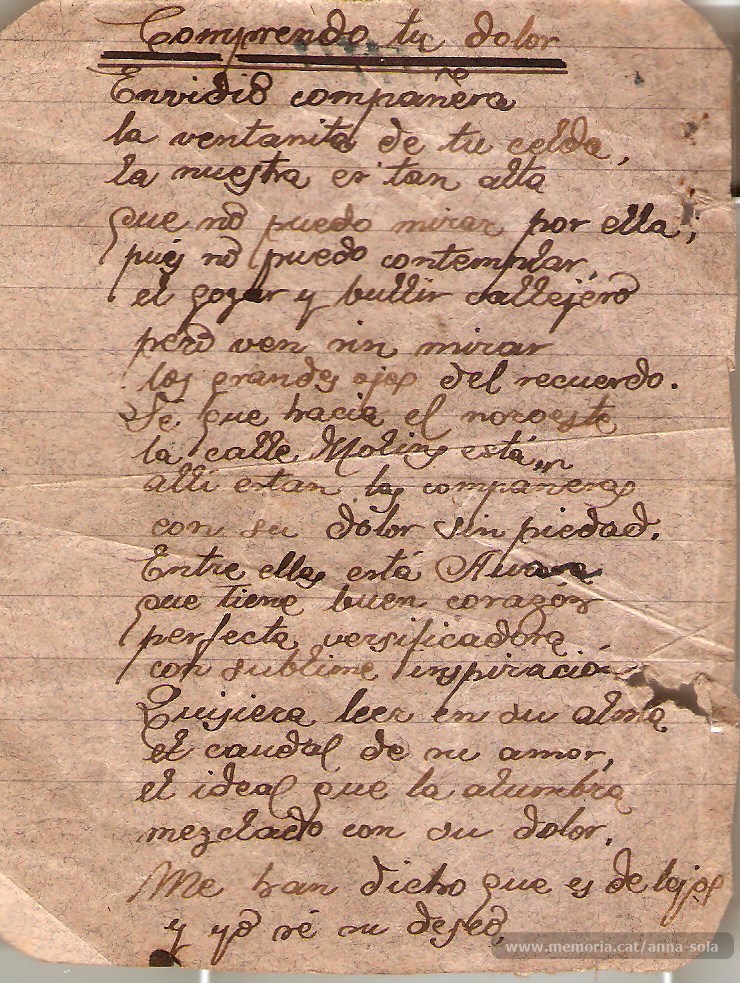 Comprendo tu dolor
Envidio compañera
la ventanita de tu celda,
la nuestra es tan alta
que no puedo mirar por ella;
pues no puedo contemplar,
el gozar y bullir callejero
pero ven sin mirar
los grandes ojos del recuerdo.
Sé que hacia el noroeste
la calle Molins está,
alli estan las compañeras
con su dolor sin piedad.
Entre ellas está
que tiene buen corazon
perfecta versificadora
con sublime inspiración
Quisiera leer en su alma
el caudal de su amor,
el ideal que la alumbra
mezclado con su dolor.
Me han dicho que es de lejos
y yo sé su deseo,
www.memoria.cat/anna-sola